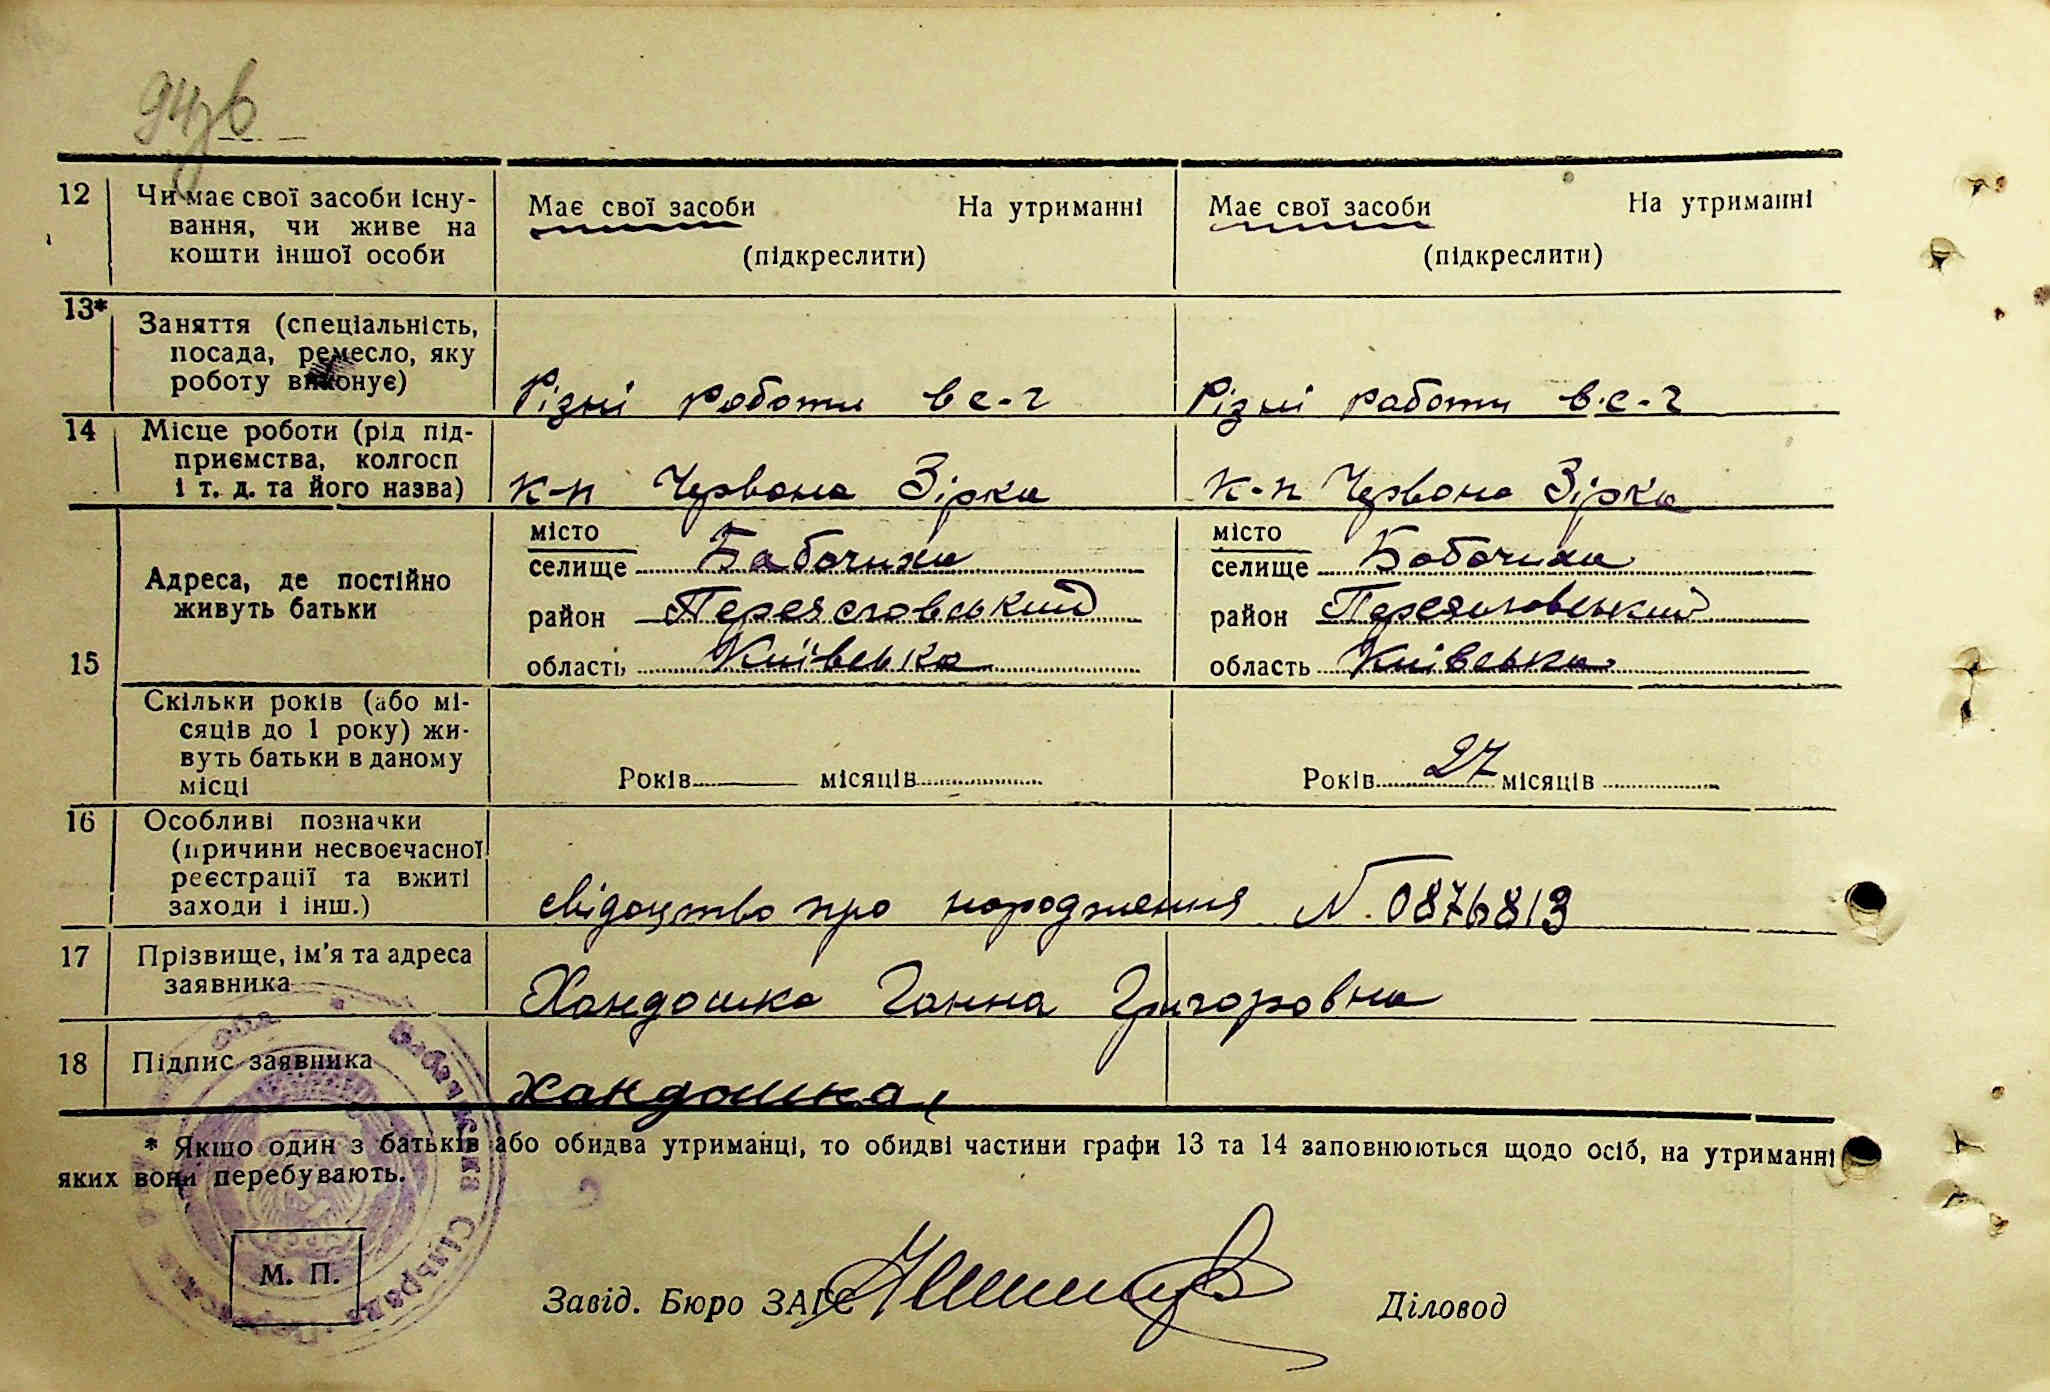 94зв
12 Чи має свої засоби існу-
вання, чи живе на
кошти іншої особи
Має свої засоби На утриманні
(підкреслити)
Має свої засоби На утриманні
(підкреслити)
13* Заняття (спеціальність,
посада, ремесло, яку
роботу виконує)
Різні роботи в с-г
Різні работи в.с-г
14 Місце роботи (рід під-
приємства, колгосп
і т. д. та його назва)
к-п Червона Зірка
к-п Червона Зірка
15 Адреса, де постійно
живуть батьки
місто
селище Бабачиха
район Переяславський
область Київська
місто
селище Бабачиха
район Переяславський
область Київська
Скільки років (або мі-
сяців до 1 року) жи-
вуть батьки в даному
місці
Років місяців
Років 27 місяців
16 Особливі позначки
(причини несвоєчасної
реєстрації та вжиті
заходи і інш.)
свідоцтво про народження N. 0876813
17 Прізвище, ім'я та адреса
заявника
Хандошка Ганна Григоровна
18 Підпис заявника
хандошка
* Якщо один з батьків або обидва утриманці, то обидві частини графи 13 та 14 заповнюються щодо осіб, на утриманні
яких вони перебувають.
М. П.
Завід. Бюро ЗАГС
Діловод